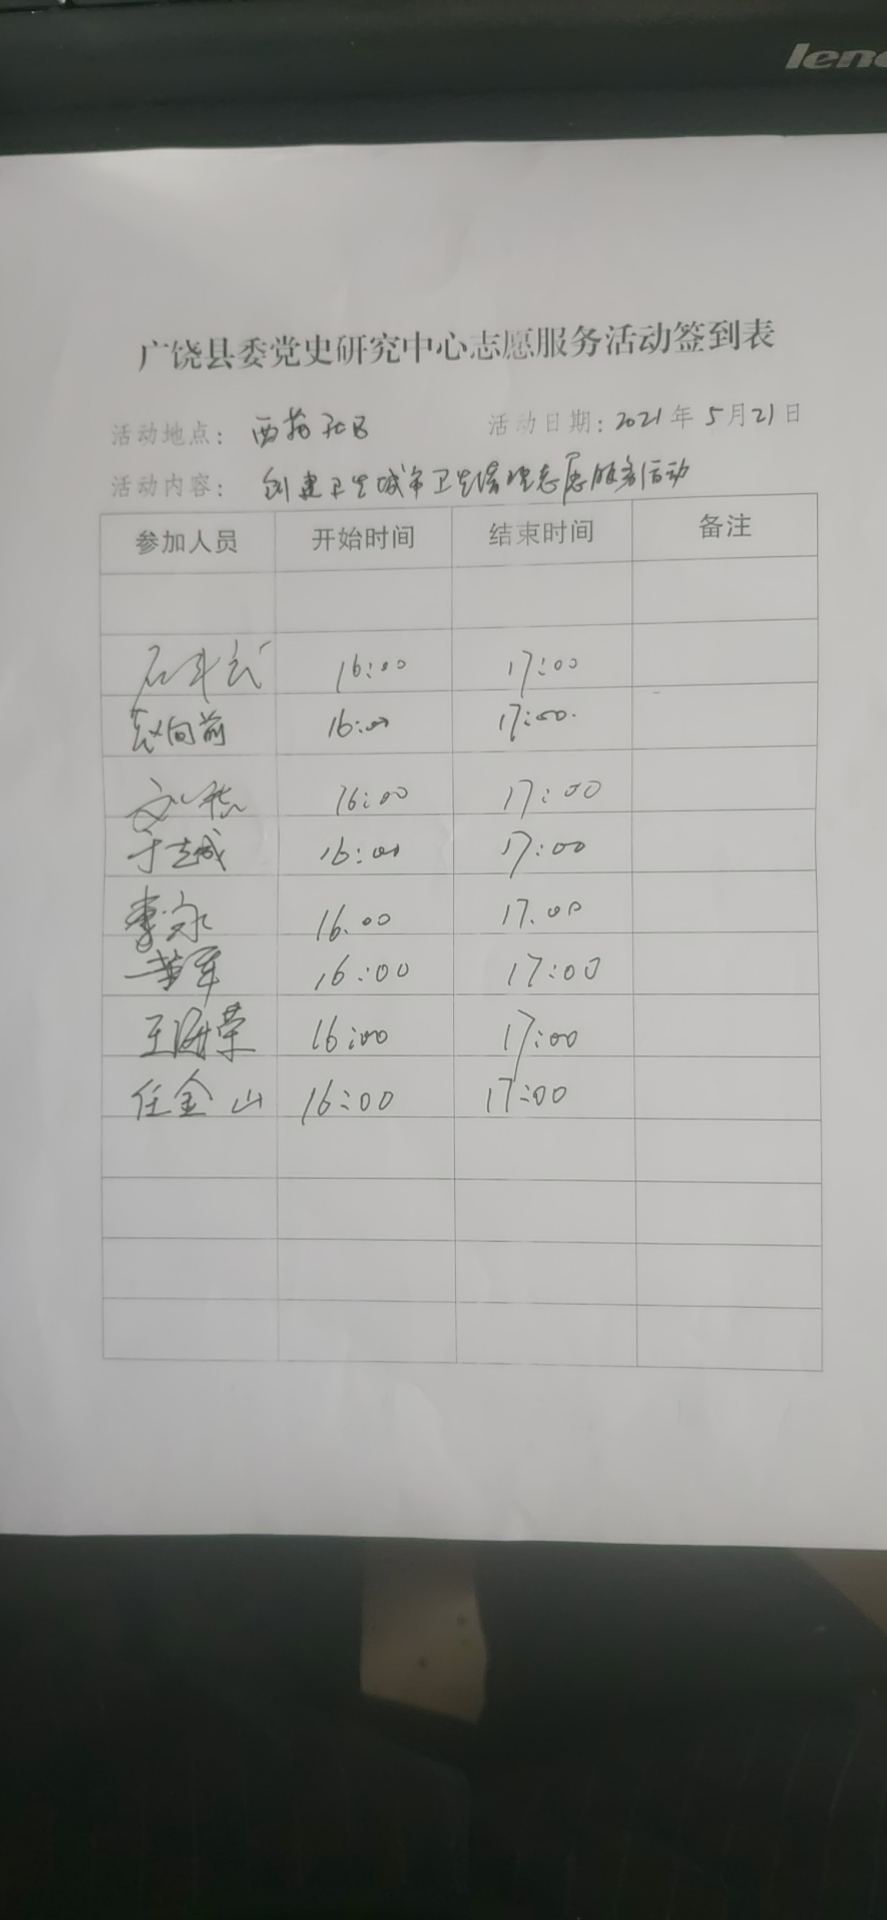 leno
广饶县委党史研究中心志愿服务活动签到表
活动地点： 西苑社区 活动日期：2021年5月21日
活动内容： 创建卫生城市卫生清理志愿服务活动
参加人员 开始时间 结束时间 备注
16:00 17:00
赵向前 16:00 17:00.
16:00 17:00
于志城 16:00 17:00
李永 16.00 17.00
16:00 17:00
王海荣 16:00 17:00
任金山 16:00 17:00